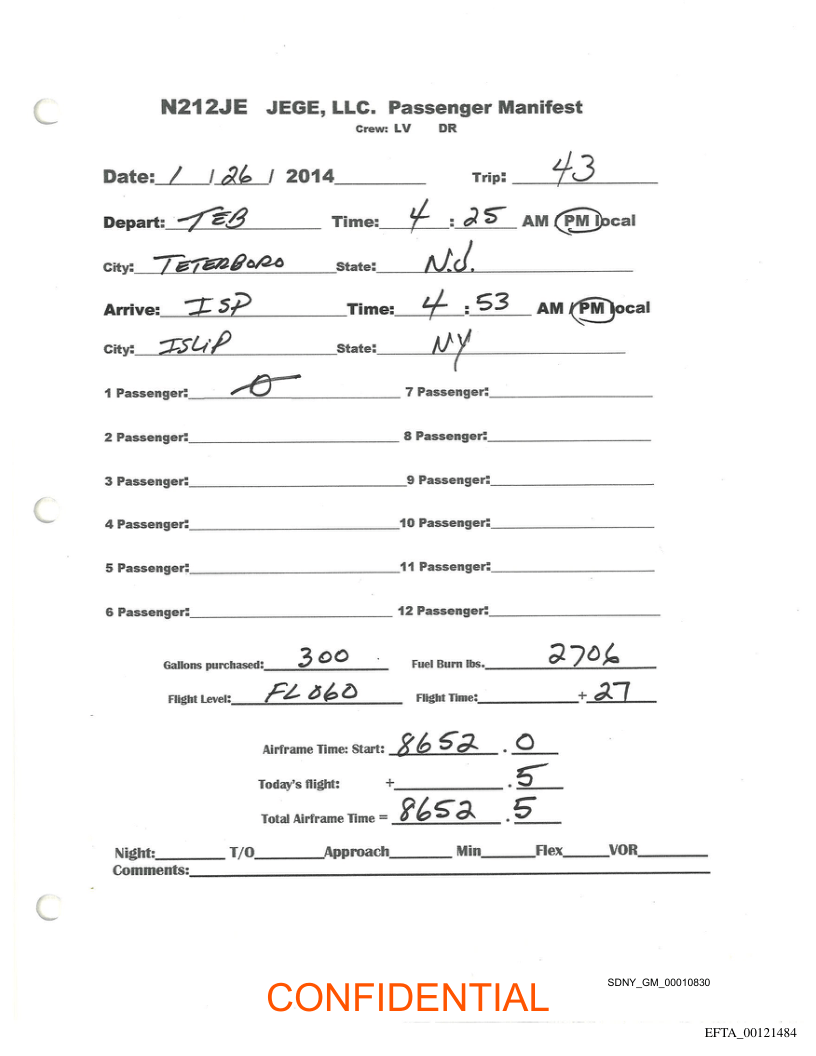 N212JE JEGE, LLC. Passenger Manifest
Crew: LV DR
Date: 1 / 26 / 2014 Trip: 43
Depart: TEB Time: 4 : 25 AM / PM local
City: TETERBORO State: N.J.
Arrive: ISP Time: 4 : 53 AM / PM local
City: ISLIP State: NY
1 Passenger: 0 7 Passenger:
2 Passenger: 8 Passenger:
3 Passenger: 9 Passenger:
4 Passenger: 10 Passenger:
5 Passenger: 11 Passenger:
6 Passenger: 12 Passenger:
Gallons purchased: 300 Fuel Burn lbs. 2706
Flight Level: FL 060 Flight Time: + 27
Airframe Time: Start: 8652 . 0
Today's flight: + . 5
Total Airframe Time = 8652 . 5
Night: T/O Approach Min Flex VOR
Comments:
SDNY_GM_00010830
CONFIDENTIAL
EFTA_00121484